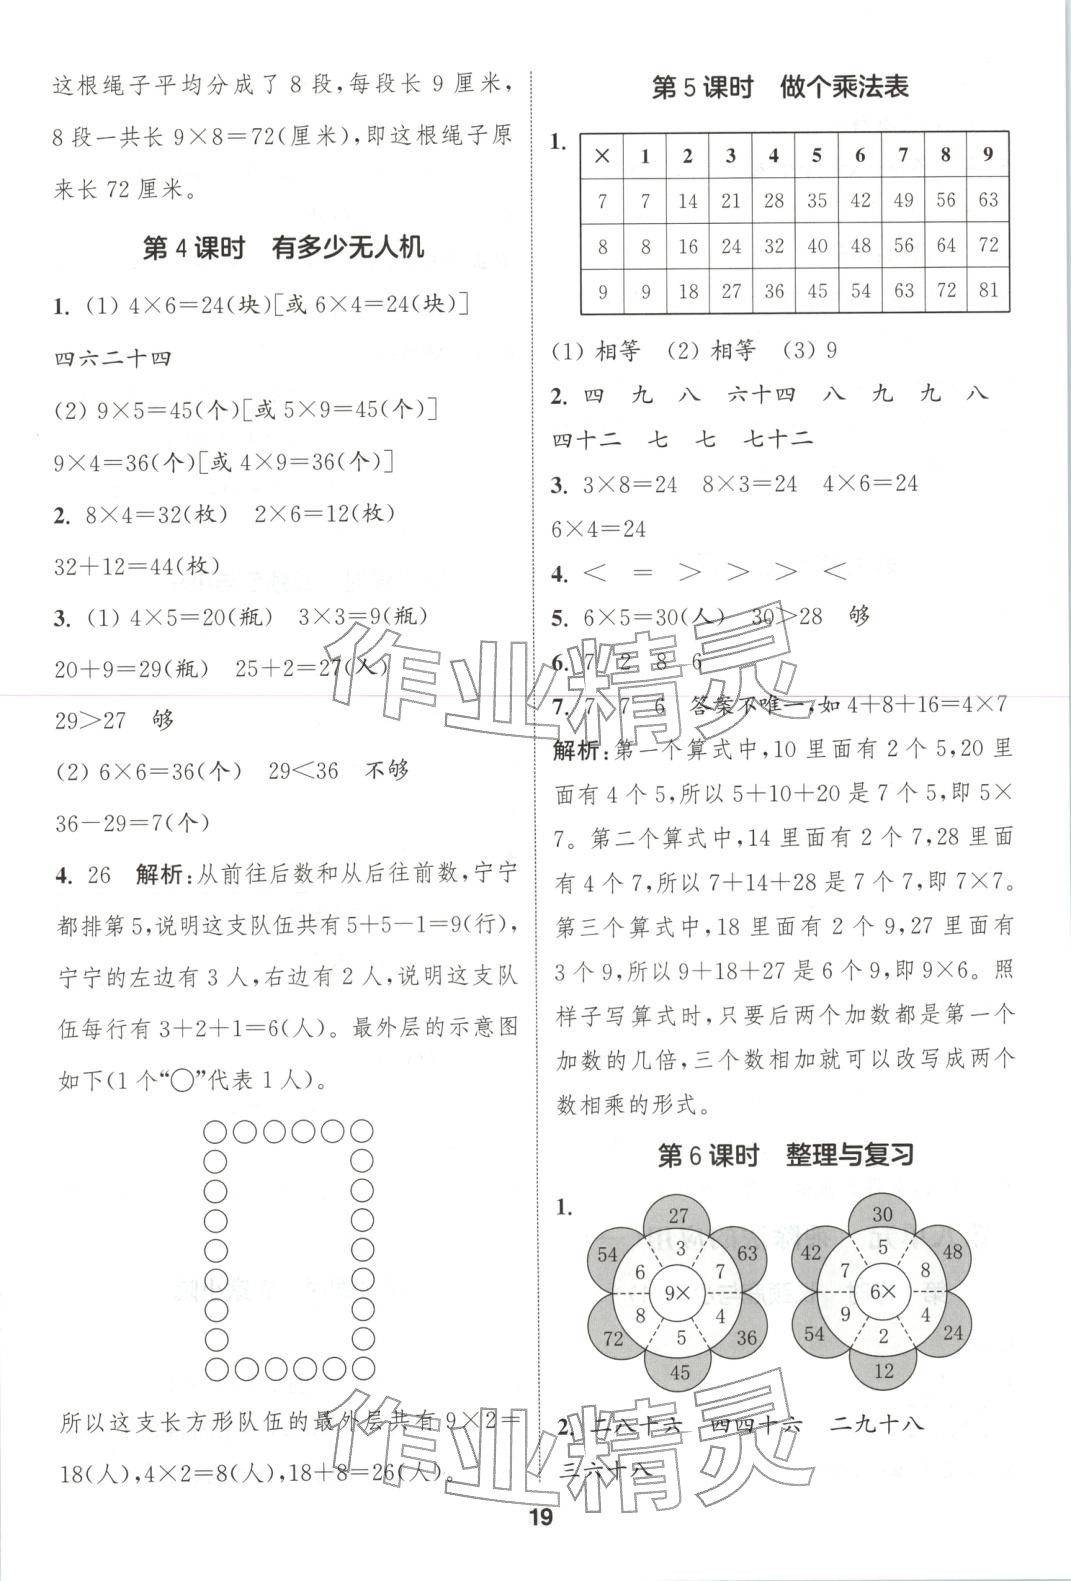 这根绳子平均分成了 8 段,每段长 9 厘米,
8 段一共长 9×8=72(厘米),即这根绳子原
来长 72 厘米。
第 4 课时 有多少无人机
1. (1) 4×6=24(块)[或 6×4=24(块)]
四六二十四
(2) 9×5=45(个)[或 5×9=45(个)]
9×4=36(个)[或 4×9=36(个)]
2. 8×4=32(枚) 2×6=12(枚)
32+12=44(枚)
3. (1) 4×5=20(瓶) 3×3=9(瓶)
20+9=29(瓶) 25+2=27(人)
29>27 够
(2) 6×6=36(个) 29<36 不够
36-29=7(个)
4. 26 解析:从前往后数和从后往前数,宁宁
都排第 5,说明这支队伍共有 5+5-1=9(行),
宁宁的左边有 3 人,右边有 2 人,说明这支队
伍每行有 3+2+1=6(人)。最外层的示意图
如下(1 个“○”代表 1 人)。
所以这支长方形队伍的最外层共有 9×2=
18(人),4×2=8(人),18+8=26(人)。
第 5 课时 做个乘法表
1.
× 1 2 3 4 5 6 7 8 9
7 7 14 21 28 35 42 49 56 63
8 8 16 24 32 40 48 56 64 72
9 9 18 27 36 45 54 63 72 81
(1) 相等 (2) 相等 (3) 9
2. 四 九 八 六十四 八 九 九 八
四十二 七 七 七十二
3. 3×8=24 8×3=24 4×6=24
6×4=24
4. < = > > > <
5. 6×5=30(人) 30>28 够
6. 7 2 8 6
7. 7 7 6 答案不唯一,如 4+8+16=4×7
解析:第一个算式中,10 里面有 2 个 5,20 里
面有 4 个 5,所以 5+10+20 是 7 个 5,即 5×
7。第二个算式中,14 里面有 2 个 7,28 里面
有 4 个 7,所以 7+14+28 是 7 个 7,即 7×7。
第三个算式中,18 里面有 2 个 9,27 里面有
3 个 9,所以 9+18+27 是 6 个 9,即 9×6。照
样子写算式时,只要后两个加数都是第一个
加数的几倍,三个数相加就可以改写成两个
数相乘的形式。
第 6 课时 整理与复习
1.
27 30
54 3 63 42 5 48
6 7 7 8
9× 6×
8 4 9 4
72 5 36 54 2 24
45 12
2. 二八十六 四四十六 二九十八
三六十八
19
作业精灵
作业精灵